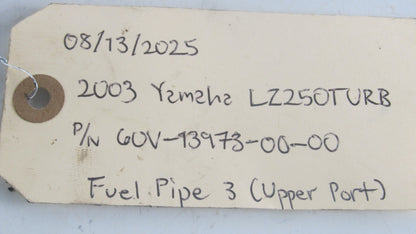 08/13/2025
2003 Yamaha LZ250TURB
P/N 60V-13973-00-00
Fuel Pipe 3 (Upper Port)